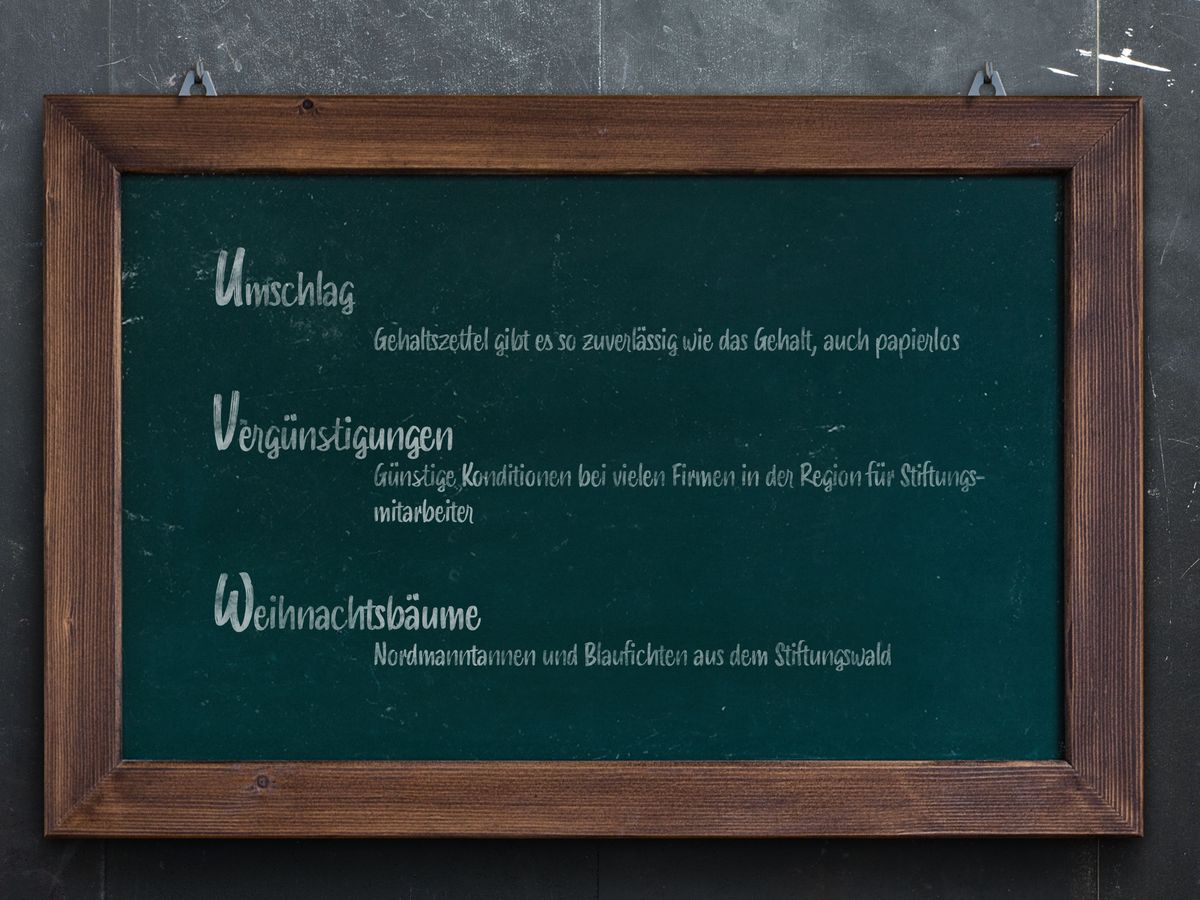 Umschlag
Gehaltszettel gibt es so zuverlässig wie das Gehalt, auch papierlos
Vergünstigungen
Günstige Konditionen bei vielen Firmen in der Region für Stiftungs-
mitarbeiter
Weihnachtsbäume
Nordmanntannen und Blaufichten aus dem Stiftungswald